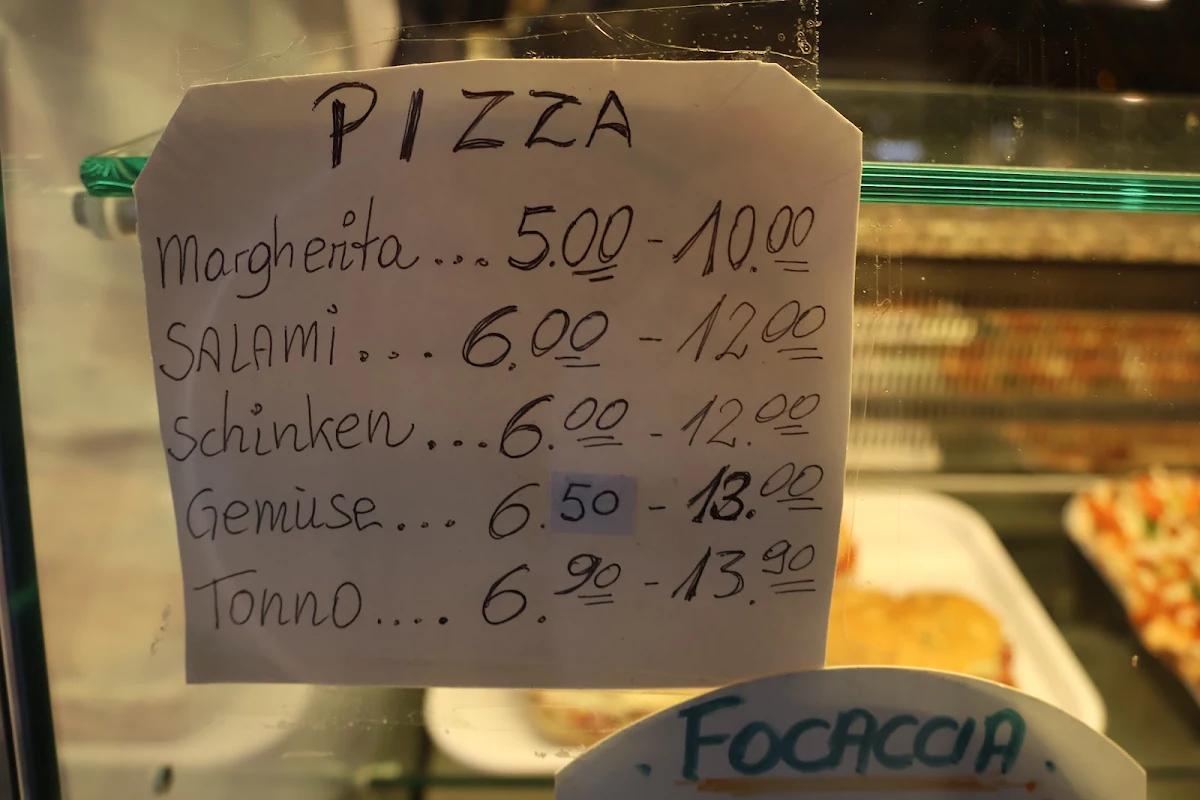 PIZZA
Margherita... 5.00 - 10.00
SALAMi.... 6.00 - 12.00
Schinken... 6.00 - 12.00
Gemüse... 6.50 - 13.00
Tonno.... 6.90 - 13.90
. FOCACCIA .